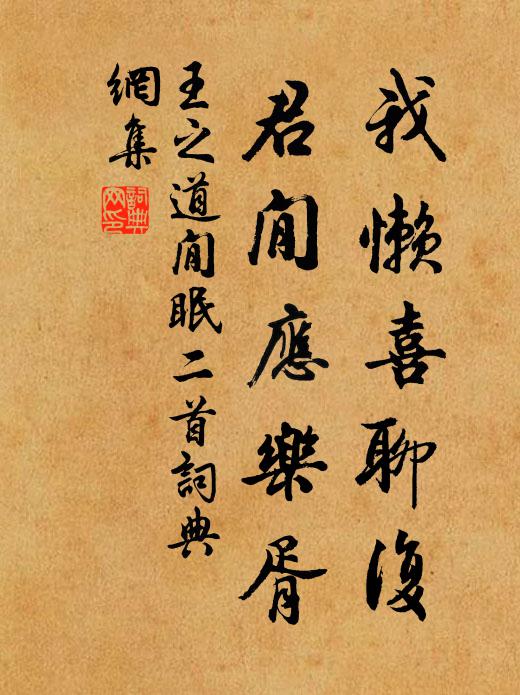 我懒喜聊復
君閒應樂胥
王之道閒眠二首詞典
網集
詞典網印